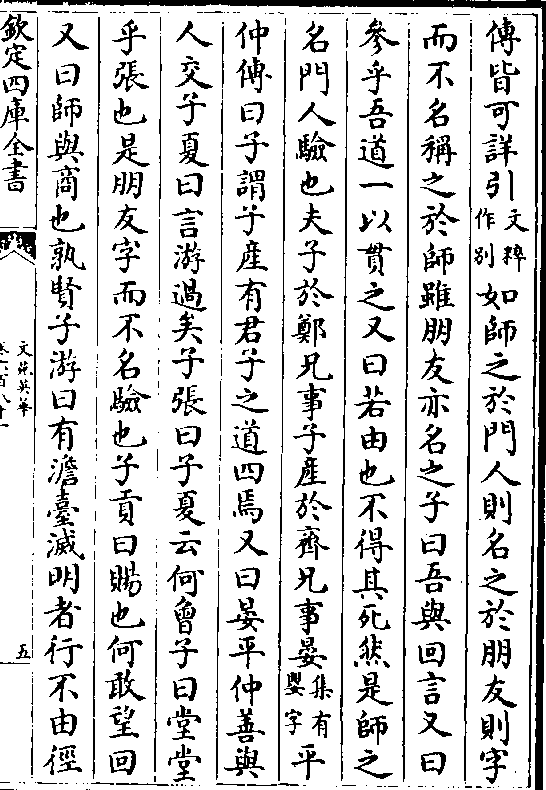 傳皆可詳引文粹作别如師之於門人則名之於朋友則字
而不名稱之於師雖朋友亦名之子曰吾與回言又曰
參乎吾道一以貫之又曰若由也不得其死然是師之
名門人驗也夫子於鄭兄事子産於齊兄事晏集有嬰字平
仲傳曰子謂子産有君子之道四焉又曰晏平仲善與
人交子夏曰言游過矣子張曰子夏云何曾子曰堂堂
乎張也是朋友字而不名驗也子貢曰賜也何敢望回
又曰師與商也孰賢子游曰有澹臺滅明者行不由徑
欽定四庫全書
文苑英華
五